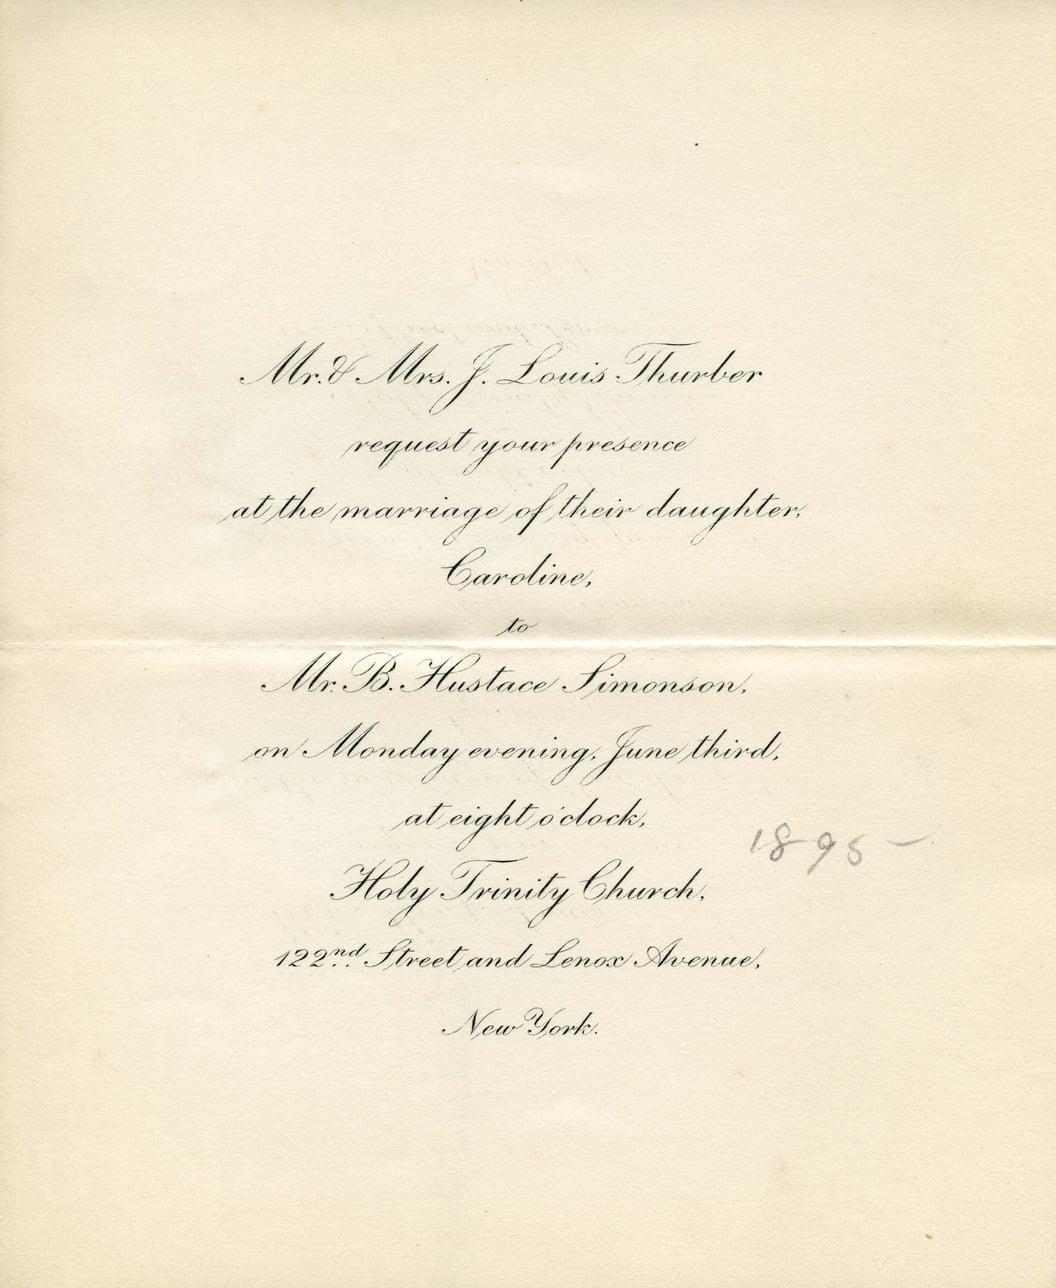 Mr. & Mrs. J. Louis Thurber
request your presence
at the marriage of their daughter,
Caroline,
to
Mr. B. Hustace Simonson,
on Monday evening, June third,
at eight o'clock,
1895 -
Holy Trinity Church,
122nd Street and Lenox Avenue,
New York.